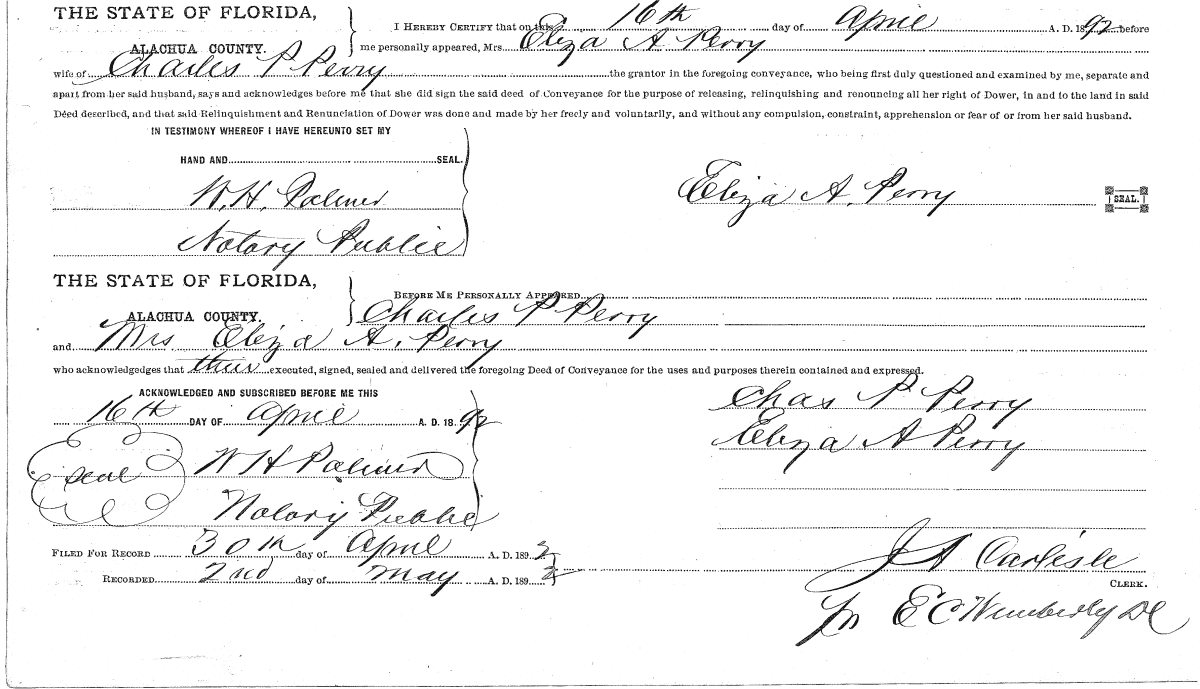 THE STATE OF FLORIDA,
ALACHUA COUNTY.
I HEREBY CERTIFY that on this 16th day of April A. D. 1892 before
me personally appeared, Mrs. Eliza A Perry
wife of Charles P Perry the grantor in the foregoing conveyance, who being first duly questioned and examined by me, separate and
apart from her said husband, says and acknowledges before me that she did sign the said deed of Conveyance for the purpose of releasing, relinquishing and renouncing all her right of Dower, in and to the land in said
Deed described, and that said Relinquishment and Renunciation of Dower was done and made by her freely and voluntarily, and without any compulsion, constraint, apprehension or fear of or from her said husband.
IN TESTIMONY WHEREOF I HAVE HEREUNTO SET MY
HAND AND SEAL.
W. H. Palmer
Notary Public
Eliza A. Perry
SEAL.
THE STATE OF FLORIDA,
ALACHUA COUNTY.
BEFORE ME PERSONALLY APPEARED
Charles P Perry
and Mrs Eliza A. Perry
who acknowledgedges that executed, signed, sealed and delivered the foregoing Deed of Conveyance for the uses and purposes therein contained and expressed.
ACKNOWLEDGED AND SUBSCRIBED BEFORE ME THIS
16th DAY OF April A. D. 1892
seal
W H Palmer
Notary Public
Chas P Perry
Eliza A Perry
FILED FOR RECORD 30th day of April A. D. 1892
RECORDED 2nd day of May A. D. 1892
J A Carlisle
CLERK.
E C Wimberly DC